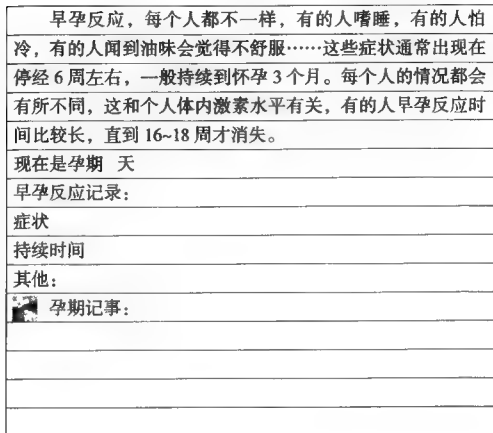 早孕反应，每个人都不一样，有的人嗜睡，有的人怕
冷，有的人闻到油味会觉得不舒服……这些症状通常出现在
停经 6 周左右，一般持续到怀孕 3 个月。每个人的情况都会
有所不同，这和个人体内激素水平有关，有的人早孕反应时
间比较长，直到 16~18 周才消失。
现在是孕期 天
早孕反应记录：
症状
持续时间
其他：
孕期记事：